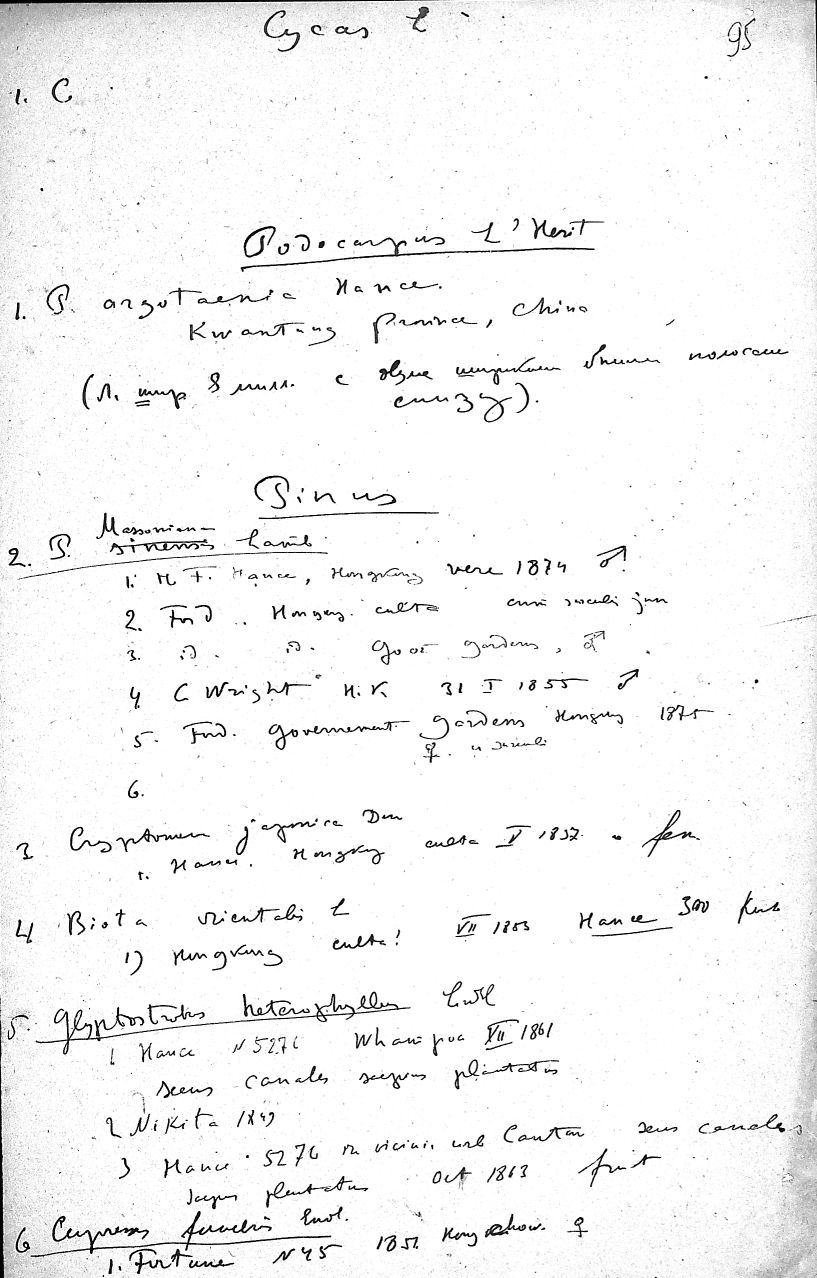 Cycas L
95
1. C
Podocarpus L'Herit
1. P. argotaenia Hance.
Kwantung province, China
(Л. шир 8 милл. с двумя широкими белыми полосами
снизу).
Pinus
Massoniana
2. P. sinensis Lamb.
1. H F. Hance, Hongkong vere 1874 ♂!
2. Ford .. Hongkg. culta cum jun
3. id. id. Gov gardens, ♂
4 C Wright H.K. 31 I 1855 ♂
5. Ford. Government gardens Hongkg 1875
♀.
6.
3 Cryptomeria japonica Don
1. Hance. Hongkg culta V 1857. fem.
4 Biota orientalis L
1) Hongkong culta! VII 1853 Hance 300
5. Glyptostrobus heterophyllus Endl
1 Hance N 5276 Whampoa VII 1861
secus canales saepius plantatus
2 Nikita 1849
3 Hance 5276 in vicin. urb Canton secus canales
saepius plantatus Oct 1863 fruit
6 Cupressus funebris Endl.
1. Fortune N 45 185 ♀